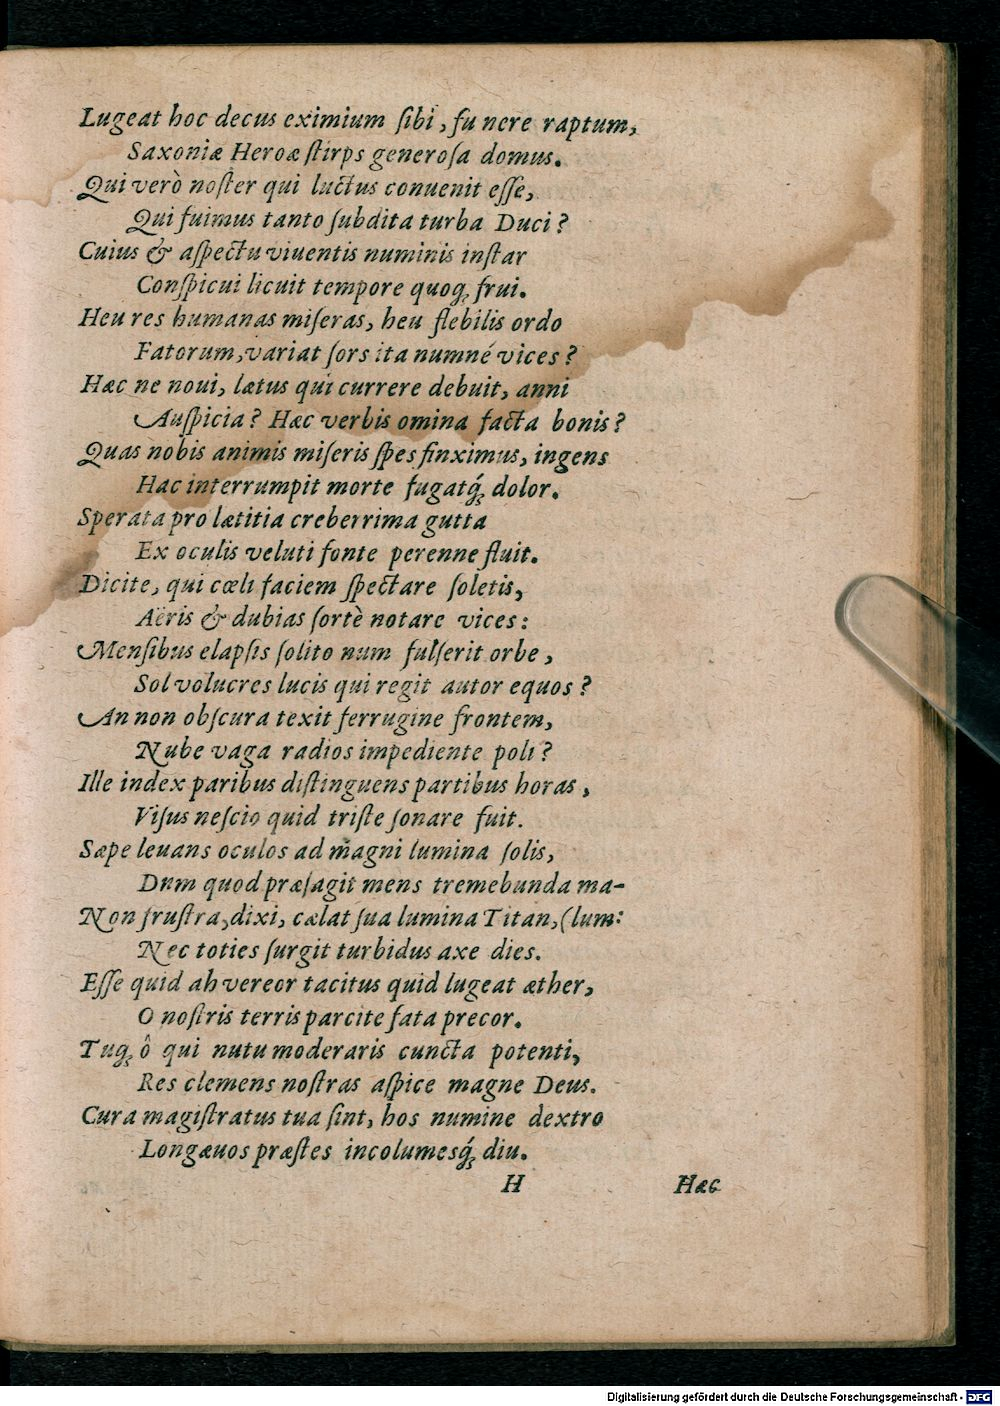 Lugeat hoc decus eximium ſibi, fu nere raptum,
Saxoniæ Heroæ ſtirps generoſa domus.
Qui verò noſter qui luctus conuenit eſſe,
Qui fuimus tanto ſubdita turba Duci?
Cuius & aſpectu viuentis numinis inſtar
Conſpicui licuit tempore quoq; frui.
Heu res humanas miſeras, heu flebilis ordo
Fatorum, variat ſors ita numné vices?
Hæc ne noui, lætus qui currere debuit, anni
Auſpicia? Hæc verbis omina facta bonis?
Quas nobis animis miſeris ſpes finximus, ingens
Hac interrumpit morte fugatq́; dolor.
Sperata pro lætitia creberrima gutta
Ex oculis veluti fonte perenne fluit.
Dicite, qui cœli faciem ſpectare ſoletis,
Aëris & dubias ſortè notare vices:
Menſibus elapſis ſolito num fulſerit orbe,
Sol volucres lucis qui regit autor equos?
An non obſcura texit ferrugine frontem,
Nube vaga radios impediente poli?
Ille index paribus diſtinguens partibus horas,
Viſus neſcio quid triſte ſonare fuit.
Sæpe leuans oculos ad magni lumina ſolis,
Dum quod præſagit mens tremebunda ma-
Non fruſtra, dixi, cælat ſua lumina Titan, (lum:
Nec toties ſurgit turbidus axe dies.
Eſſe quid ah vereor tacitus quid lugeat æther,
O noſtris terris parcite fata precor.
Tuq; ô qui nutu moderaris cuncta potenti,
Res clemens noſtras aſpice magne Deus.
Cura magiſtratus tua ſint, hos numine dextro
Longæuos præſtes incolumesq́; diu.
H Hæc
Digitalisierung gefördert durch die Deutsche Forschungsgemeinschaft - DFG